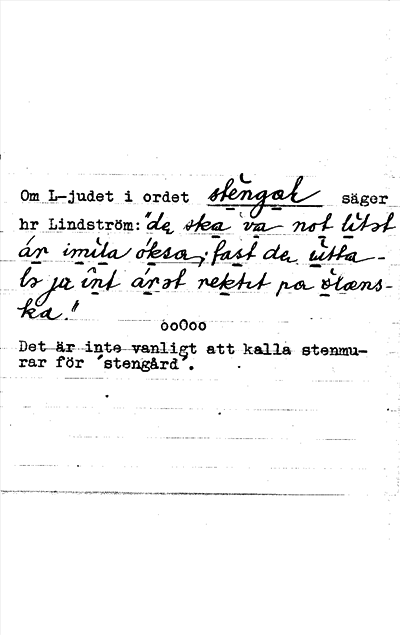 Om L-judet i ordet stengaL säger
hr Lindström: "de ska va not litet
år imila öksa; fast de utta-
ls ja int året rektit pa ölæns-
ka."
ooOoo
Det är inte vanligt att kalla stenmu-
rar för "stengård".